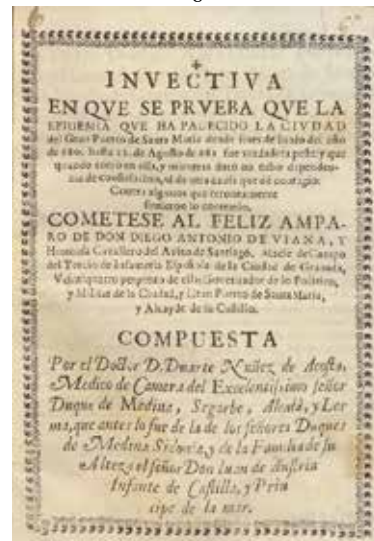 INVECTIVA
EN QVE SE PRVEBA QVE LA
EPIDEMIA QVE HA PADECIDO LA CIVDAD
del Gran Puerto de Santa Maria desde fines de Iunio del año
de hasta 22. de Agosto de fue verdadera peste, y que
quando entrò en ella, y mientras durò no tubo dependen-
cia de ni de otra causa que de contagio.
Contra algunos que
lo contrario.
COMETESE AL FELIZ AMPA-
RO DE DON DIEGO ANTONIO DE VIANA, Y
Hinojosa Cavallero del Avito de Santiago, Maese de Campo
del Tercio de Infanteria Española de la Ciudad de Granada,
Veintiquatro perpetuo de ella, Governador de lo Politico,
y Militar de la Ciudad, y Gran Puerto de Santa Maria,
y Alcayde de su Castillo.
COMPUESTA
Por el Doctor D. Duarte Nuñez de Acosta,
Medico de Camera del Excelentissimo señor
Duque de Medina, Segorbe, Alcalà, y Ler
ma, que antes lo fue de la de los señores Duques
de Medina Sidonia, y de la Familia de su
Alteza el señor Don Iuan de Austria
Infante de Castilla, y Prin
cipe de la mar.